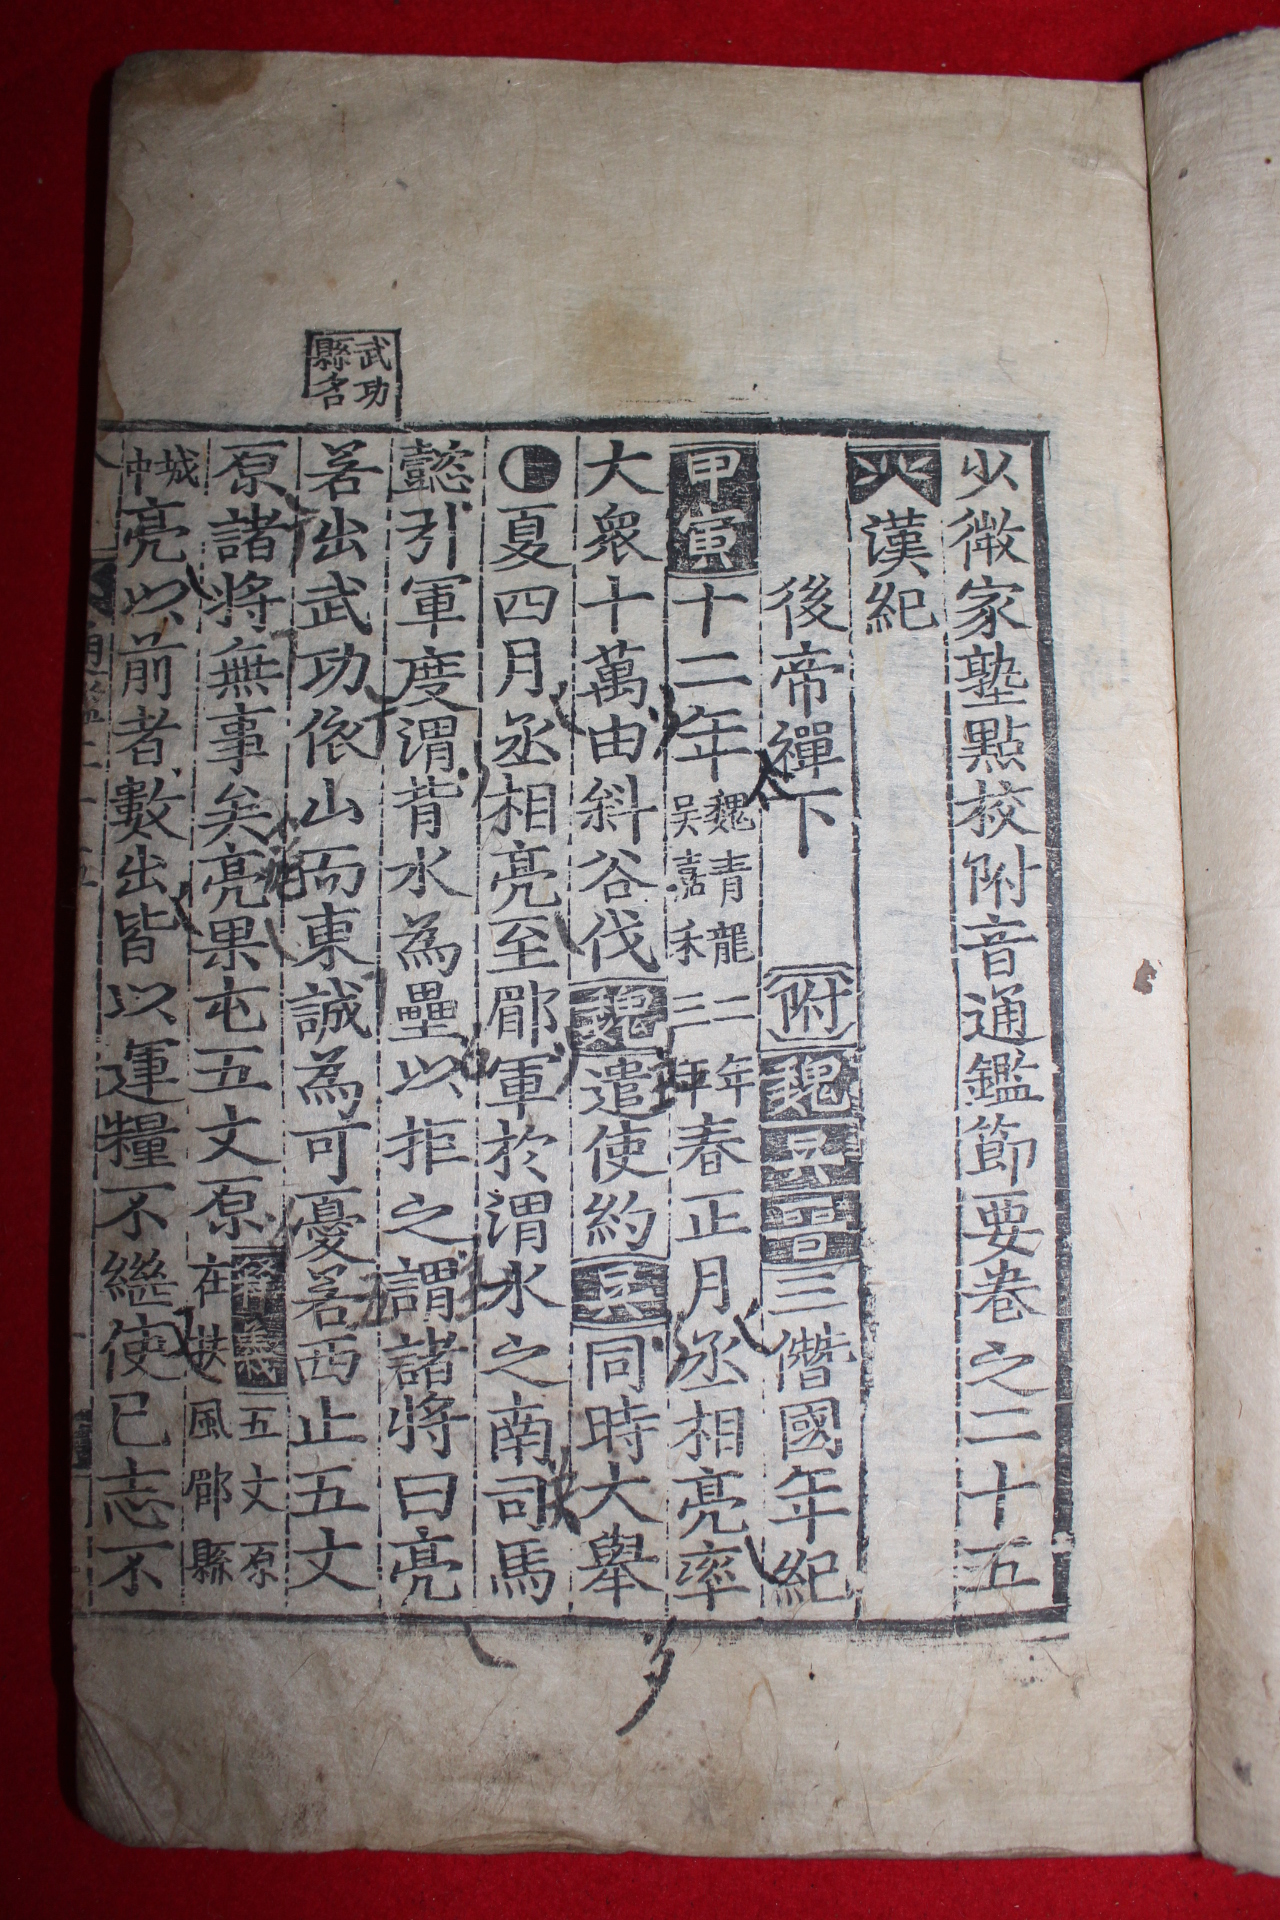 少微家塾點校附音通鑑節要卷之二十五
漢紀
後帝禪下 附 魏 吳 晉 三僭國年紀
甲寅十二年魏青龍二年吳嘉禾三年春正月丞相亮率
大衆十萬由斜谷伐魏遣使約吳同時大舉
夏四月丞相亮至郿軍於渭水之南司馬
懿引軍度渭背水為壘以拒之謂諸將曰亮
若出武功依山而東誠為可憂若西止五丈
武功縣名
原諸將無事矣亮果屯五丈原五丈原在扶風郿縣
城中亮以前者數出皆以運糧不繼使已志不